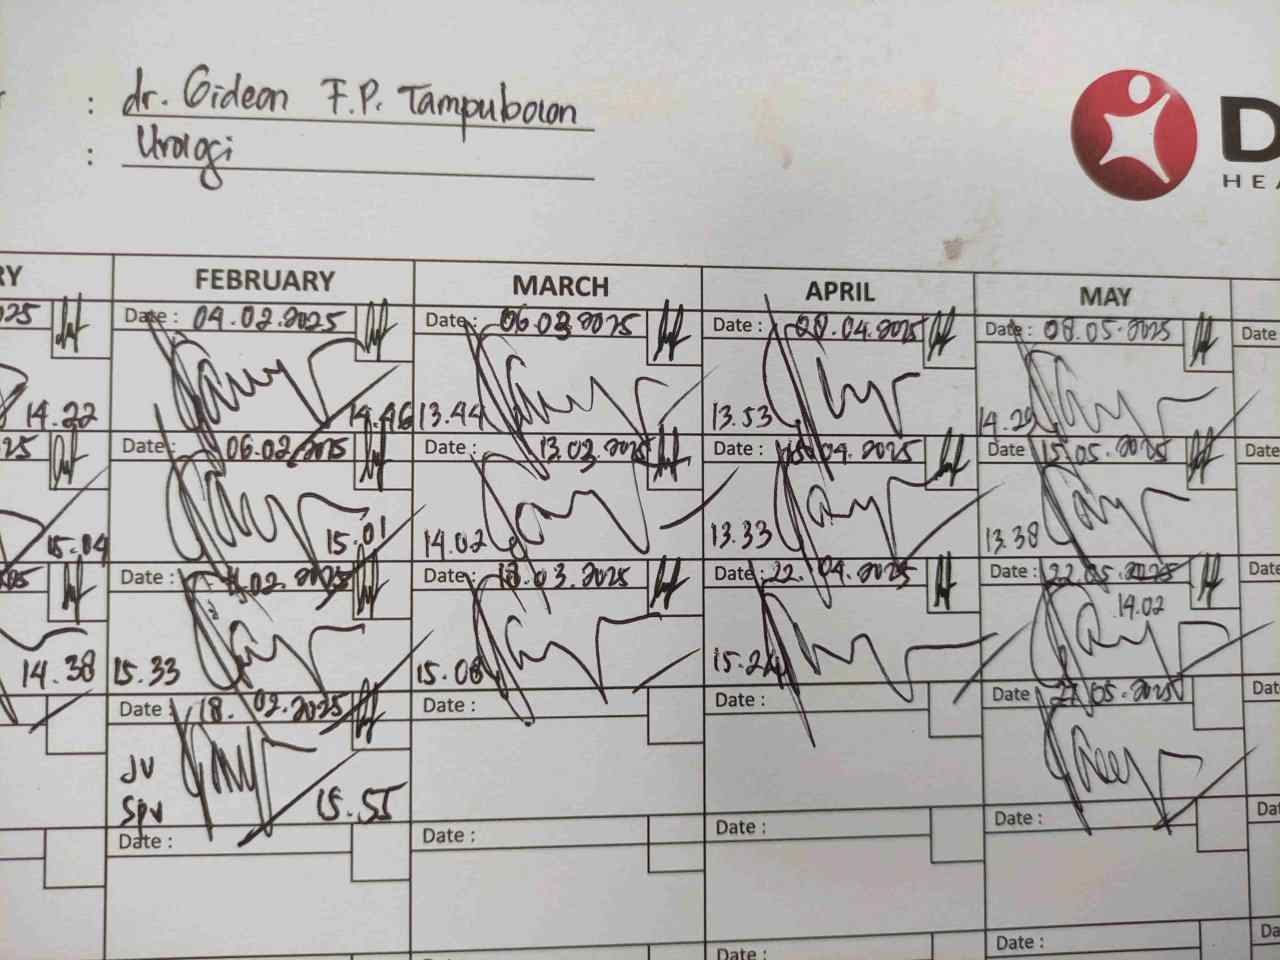 : dr. Gideon F.P. Tampubolon
: Urologi
D
HEA
RY FEBRUARY MARCH APRIL MAY
025 Date : 04.02.2025 Date : 06.03.2025 Date : 08.04.2025 Date : 08.05.2025 Date
14.22 14.46 13.44 13.53 14.29
25 Date : 06.02.2025 Date : 13.03.2025 Date : 15.04.2025 Date 15.05.2025 Date
15.04 15.01 14.02 13.33 13.38
25 Date : 11.02.2025 Date : 18.03.2025 Date : 22.04.2025 Date : 22.05.2025 Date
14.02
14.38 15.33 15.08 15.24
Date : 18.02.2025 Date : Date : Date 27.05.2025 Dat
JV
Spv 15.55
Date : Date : Date : Date : Da
Date : Da